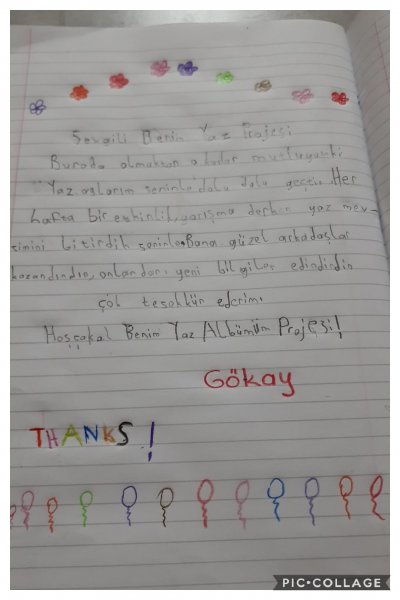 Sevgili Benim Yaz Projesi
Burada olmaktan o kadar mutluyumki
Yaz aylarım seninle dolu dolu geçti. Her
hafta bir etkinlik, yarışma derken yaz mev-
simini bitirdik seninle. Bana güzel arkadaşlar
kazandırdın, onlardan yeni bilgiler edindirdin
çok teşekkür ederim.
Hoşçakal Benim Yaz Albümüm Projesi!
Gökay
THANKS!
PIC•COLLAGE